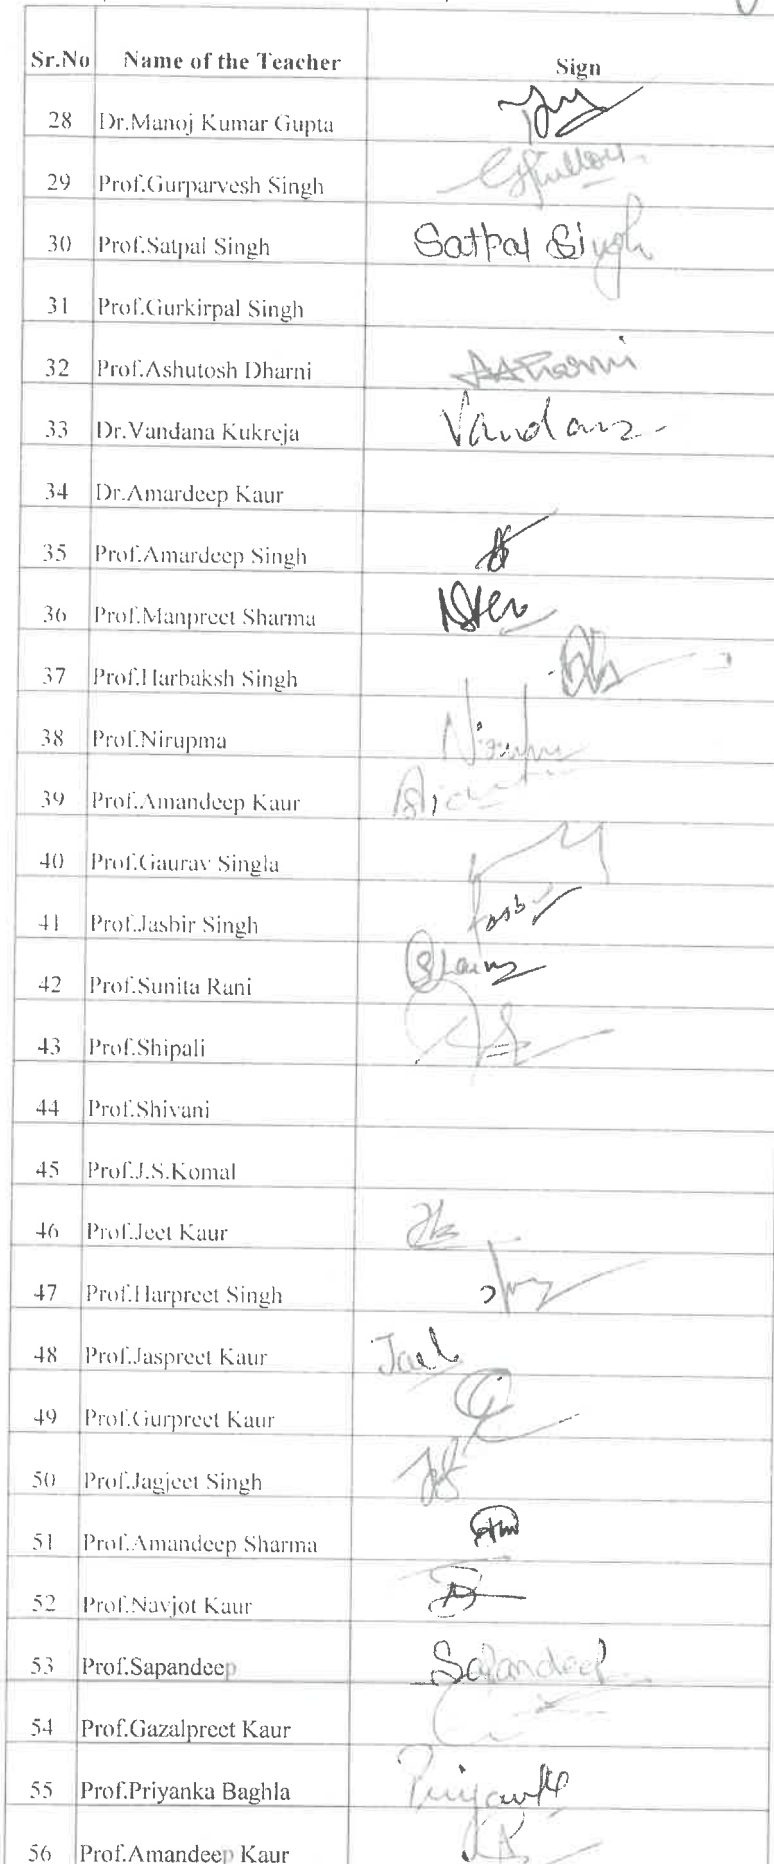 Sr.No Name of the Teacher Sign
28 Dr.Manoj Kumar Gupta
29 Prof.Gurparvesh Singh
30 Prof.Satpal Singh Satpal Singh
31 Prof.Gurkirpal Singh
32 Prof.Ashutosh Dharni
33 Dr.Vandana Kukreja Vandana
34 Dr.Amardeep Kaur
35 Prof.Amardeep Singh
36 Prof.Manpreet Sharma
37 Prof.Harbaksh Singh
38 Prof.Nirupma
39 Prof.Amandeep Kaur
40 Prof.Gaurav Singla
41 Prof.Jasbir Singh
42 Prof.Sunita Rani
43 Prof.Shipali
44 Prof.Shivani
45 Prof.J.S.Komal
46 Prof.Jeet Kaur
47 Prof.Harpreet Singh
48 Prof.Jaspreet Kaur
49 Prof.Gurpreet Kaur
50 Prof.Jagjeet Singh
51 Prof.Amandeep Sharma
52 Prof.Navjot Kaur
53 Prof.Sapandeep Sapandeep
54 Prof.Gazalpreet Kaur
55 Prof.Priyanka Baghla Priyanka
56 Prof.Amandeep Kaur